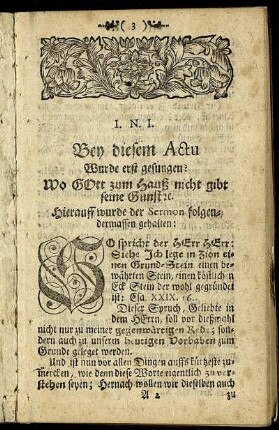 ( 3 )
I. N. I.
Bey diesem Actu
Wurde erst gesungen:
Wo GOtt zum Hauß nicht gibt
seine Gunst ꝛc.
Hierauff wurde der Sermon folgen-
dermassen gehalten:
SO spricht der HErr HErr:
Siehe Ich lege in Zion ei-
nen Grund-Stein einen be-
währten Stein, einen köstlich n
Eck Stein der wohl gegründet
ist: Esa. XXIX. 16.
Dieser Spruch, Geliebte in
dem HErrn, soll vor dießmahl
nicht nur zu meiner gegenwärtigen Rede; son-
dern auch zu unserm heutigen Vorhaben zum
Grunde geleget werden.
Und ist nun vor allen Dingen auffs kürtzeste zu
mercken, wie denn diese Worte eigentlich zu ver-
stehen seyen; Hernach wollen wir dieselben auch
A 2 zu